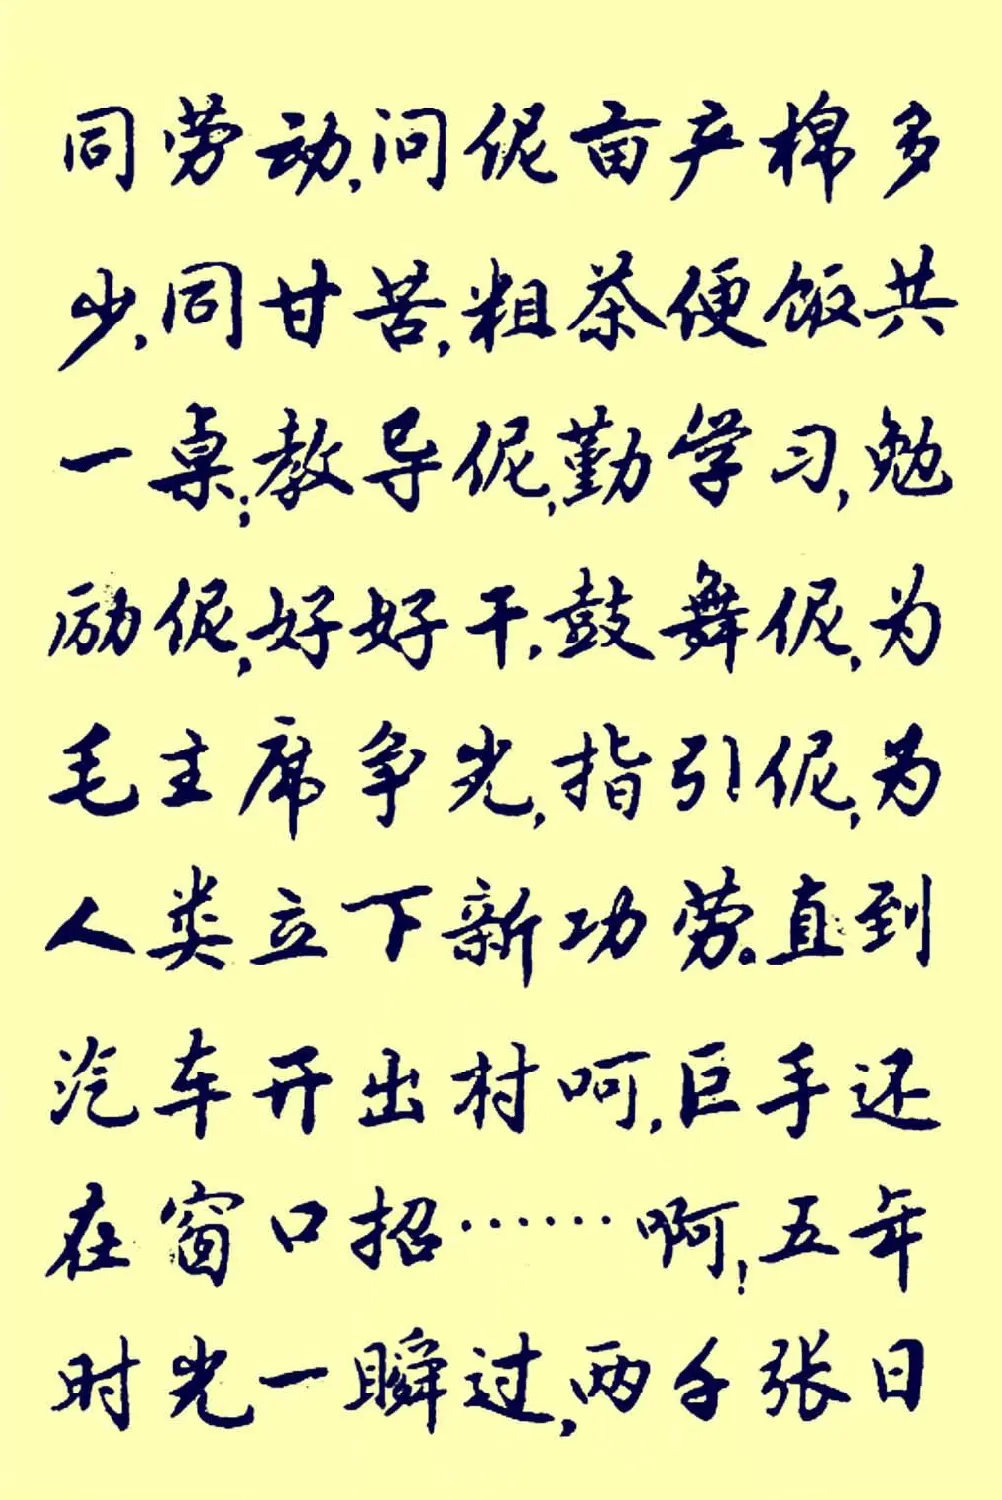 同劳动,问伲亩产棉多
少,同甘苦,粗茶便饭共
一桌;教导伲,勤学习,勉
励伲,好好干,鼓舞伲,为
毛主席争光,指引伲,为
人类立下新功劳。直到
汽车开出村呵,巨手还
在窗口招……啊!五年
时光一瞬过,两千张日